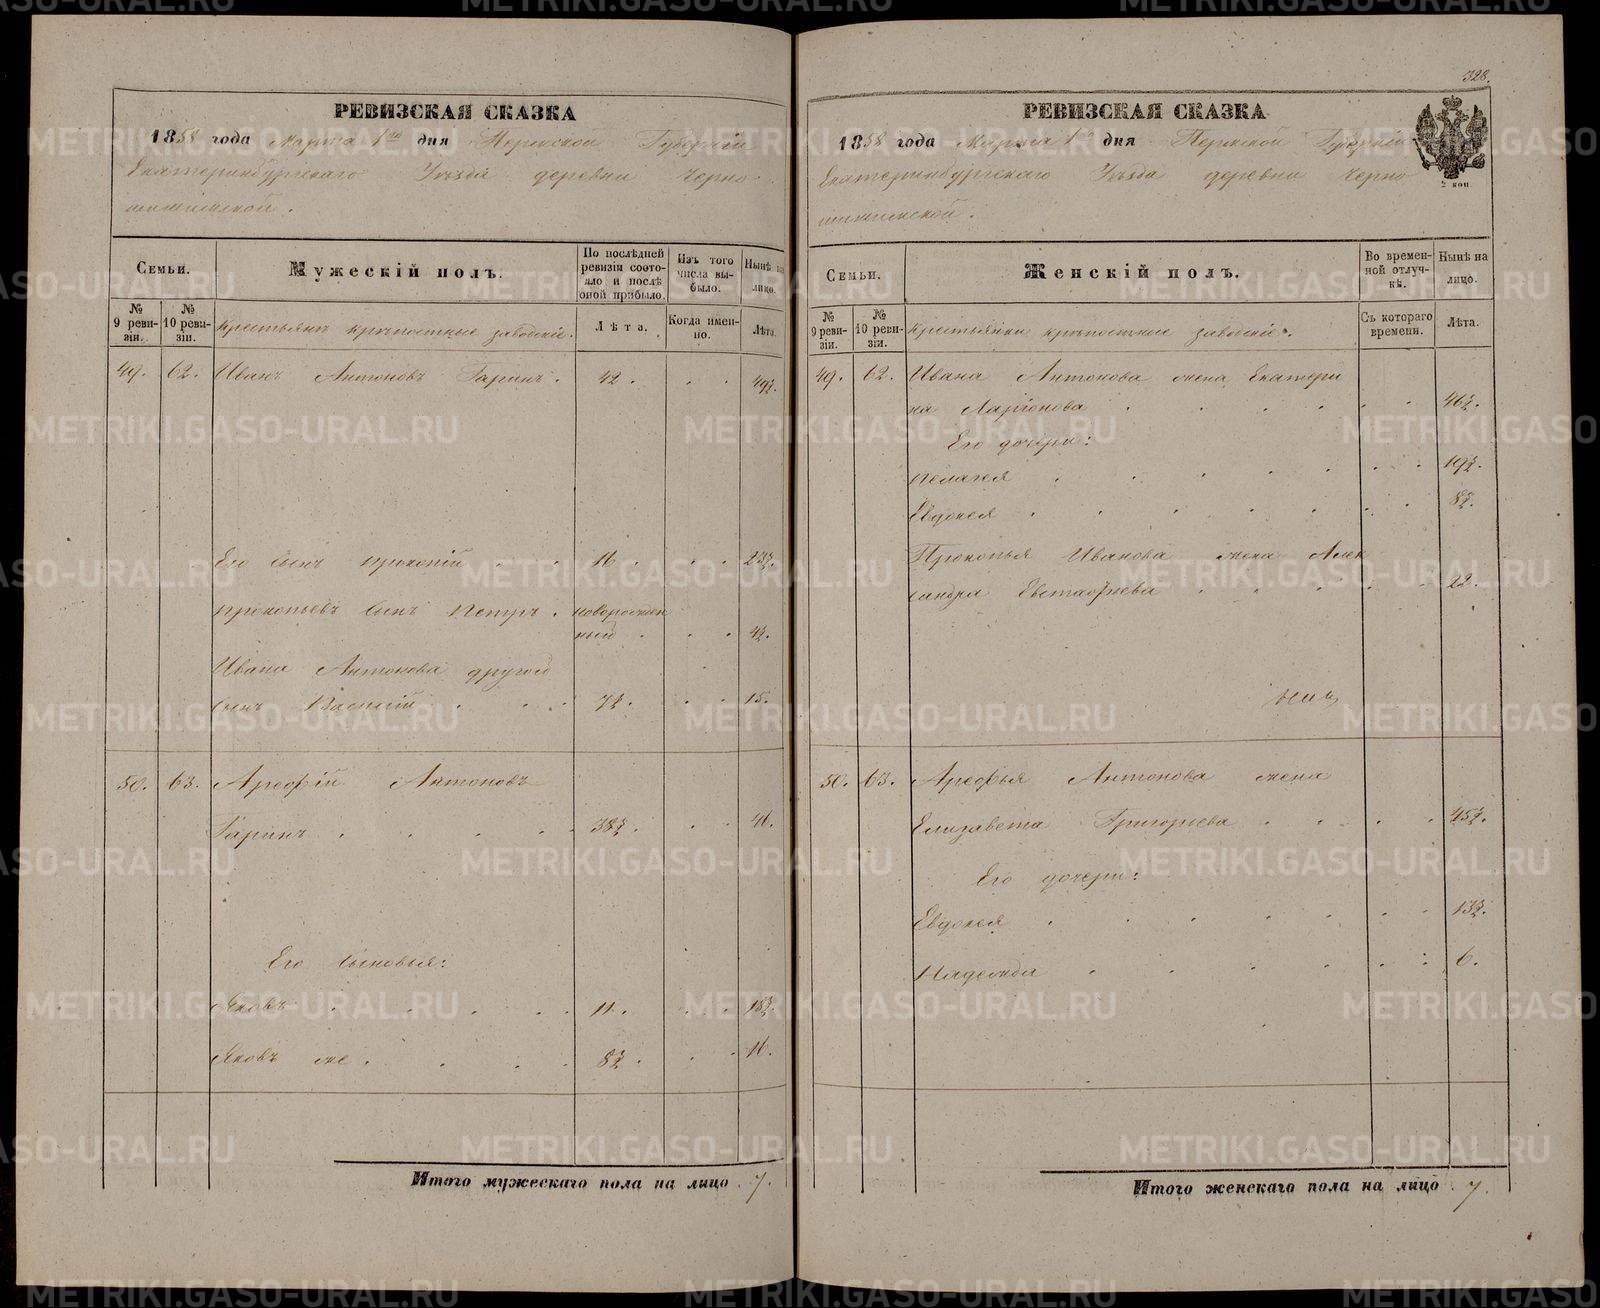 328.
РЕВИЗСКАЯ СКАЗКА
1858 года марта 1го дня Пермской Губернiи
Екатеринбургскаго Уѣзда деревни Черно-
шишимской.
Семьи.
Мужескій полъ.
По послѣдней ревизіи состояло и послѣ оной прибыло.
Изъ того числа выбыло.
Нынѣ на лицо.
№ 9 ревизіи.
№ 10 ревизіи.
Крестьянъ крѣпостные заводскіе.
Лѣта.
Когда именно.
Лѣта.
49. 62. Иванъ Антоновъ Гаринъ. 42. 49½.
Его сынъ Прокопій 16. 23½.
Прокопьевъ сынъ Петръ. новорожден
ный 4½.
Ивана Антонова другой
сынъ Василій 7½. 15.
50. 63. Арефій Антоновъ
Гаринъ 38½. 46.
Его сыновья:
Яковъ 11. 18½.
Яковъ же 8½. 16.
Итого мужескаго пола на лицо 7.
РЕВИЗСКАЯ СКАЗКА
1858 года Марта 1го дня Пермской Губернiи
Екатеринбургскаго Уѣзда деревни Черно
шишимской.
2 коп.
Семьи.
Женскій полъ.
Во временной отлучкѣ.
Нынѣ на лицо.
№ 9 ревизіи.
№ 10 ревизіи.
Крестьянки крѣпостные заводскіе.
Съ котораго времени.
Лѣта.
49. 62. Ивана Антонова жена Екатери
на Ларіонова 46½.
Его дочери:
Пелагея 19½.
Евдокея 8½.
Прокопья Иванова жена Алек
сандра Евстафіева 22.
50. 63. Арефья Антонова жена
Елизавета Григорьева 45½.
Его дочери:
Евдокея 13½.
Надежда 6.
Итого женскаго пола на лицо 7.
METRIKI.GASO-URAL.RU